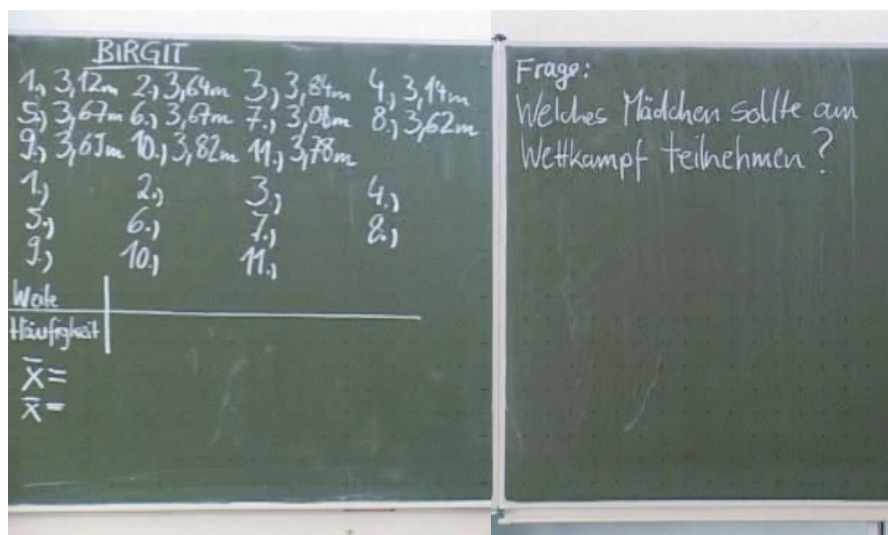 BIRGIT
1.) 3,12m 2.) 3,64m 3.) 3,84m 4.) 3,14m
5.) 3,67m 6.) 3,67m 7.) 3,08m 8.) 3,62m
9.) 3,65m 10.) 3,82m 11.) 3,78m
1.) 2.) 3.) 4.)
5.) 6.) 7.) 8.)
9.) 10.) 11.)
Weite
Häufigkeit
x̄=
x̄=
Frage:
Welches Mädchen sollte am
Wettkampf teilnehmen?